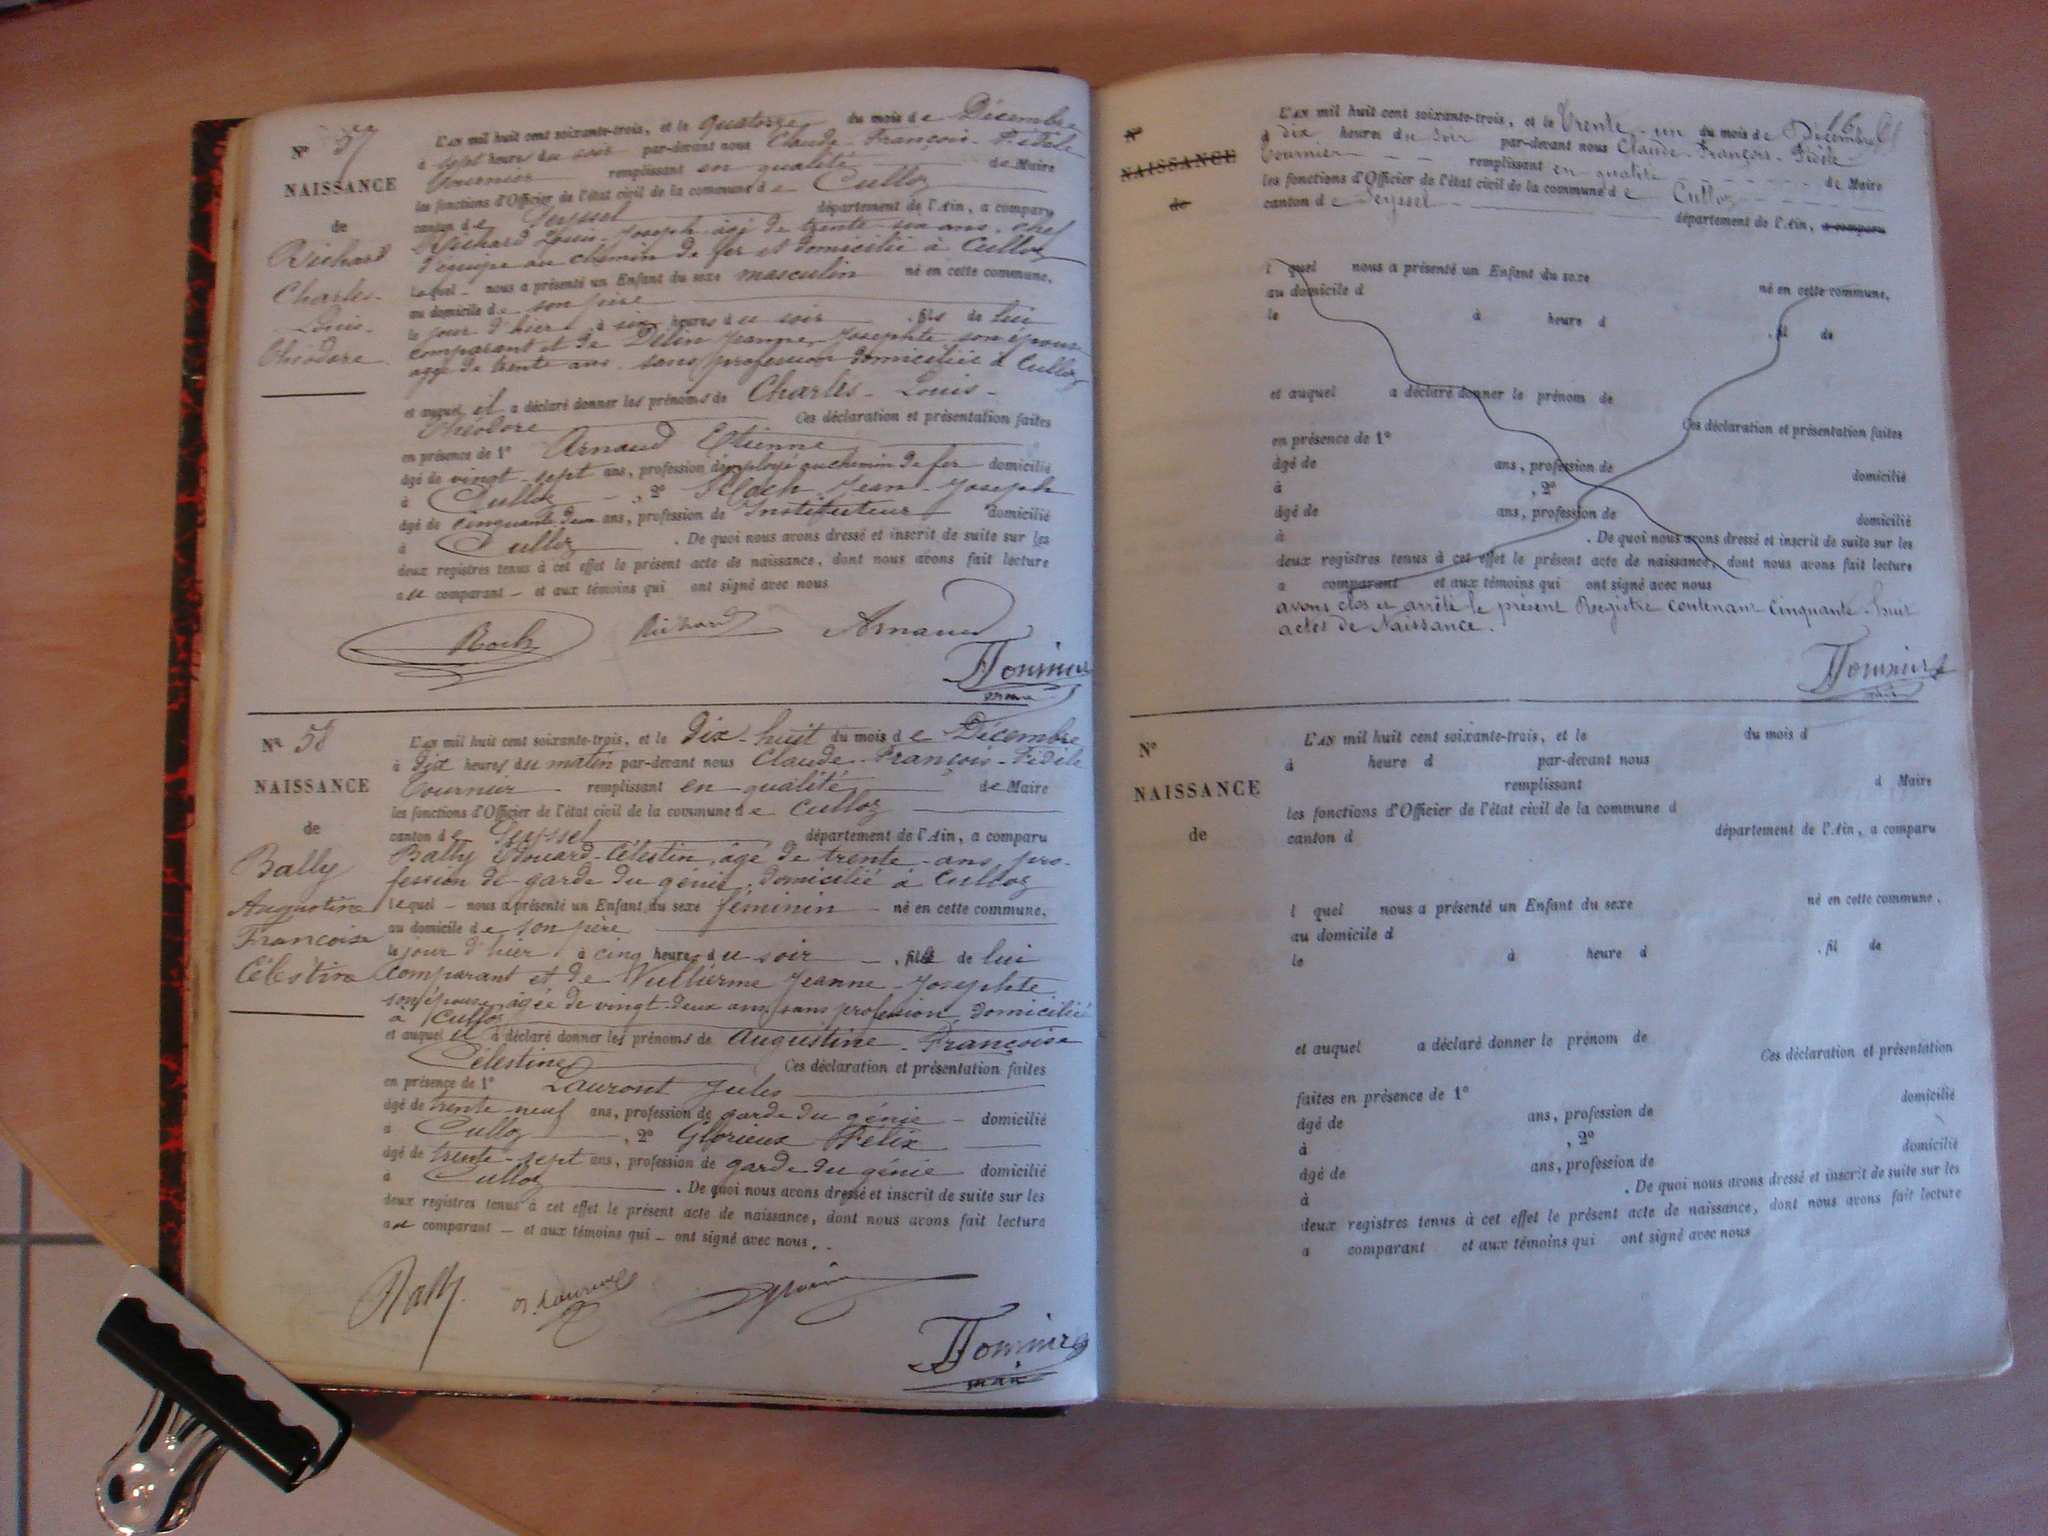 N° 57
NAISSANCE
de
Richard
Charles-
Louis-
Théodore
L'AN mil huit cent soixante-trois, et le quatorze du mois de Décembre
à sept heures du soir par-devant nous Claude-François-Fidèle
Tournier remplissant en qualité de Maire
les fonctions d'Officier de l'état civil de la commune de Culloz
canton de Seyssel département de l'Ain, a comparu
Richard Louis-Joseph âgé de trente-six ans, chef
d'équipe au chemin de fer et domicilié à Culloz
lequel - nous a présenté un Enfant du sexe masculin né en cette commune,
au domicile de son père
le jour d'hier à six heures du soir , fils de lui
comparant et de Delin Jeanne-Josephte son épouse
agée de trente ans, sans profession domiciliée à Culloz
et auquel il a déclaré donner les prénoms de Charles-Louis-
Théodore Ces déclaration et présentation faites
en présence de 1° Arnaud Etienne
âgé de vingt-sept ans, profession d'employé au chemin de fer domicilié
à Culloz , 2° Roch Jean-Joseph
âgé de cinquante deux ans, profession de Instituteur domicilié
à Culloz . De quoi nous avons dressé et inscrit de suite sur les
deux registres tenus à cet effet le présent acte de naissance, dont nous avons fait lecture
au comparant - et aux témoins qui ont signé avec nous
Roch Richard Arnaud
Tournier
maire
N° 58
NAISSANCE
de
Bally
Augustine
Françoise
Célestine
L'AN mil huit cent soixante-trois, et le dix-huit du mois de Décembre
à dix heures du matin par-devant nous Claude-François-Fidèle
Tournier remplissant en qualité de Maire
les fonctions d'Officier de l'état civil de la commune de Culloz
canton de Seyssel département de l'Ain, a comparu
Bally Edouard-Célestin, âgé de trente-ans, pro-
fession de garde du génie, domicilié à Culloz
lequel - nous a présenté un Enfant du sexe féminin - né en cette commune,
au domicile de son père
le jour d'hier, à cinq heures du soir - , fille de lui
comparant et de Vullierme Jeanne-Josephte
son épouse, âgée de vingt-deux ans, sans profession, domiciliée
à Culloz
et auquel il a déclaré donner les prénoms de Augustine-Françoise
Célestine Ces déclaration et présentation faites
en présence de 1° Lauront Jules
âgé de trente neuf ans, profession de garde du génie - domicilié
à Culloz , 2° Glorieux Félix
âgé de trente-sept ans, profession de garde du génie domicilié
à Culloz . De quoi nous avons dressé et inscrit de suite sur les
deux registres tenus à cet effet le présent acte de naissance, dont nous avons fait lecture
au comparant - et aux témoins qui - ont signé avec nous.
Bally
Tournier
maire
N°
NAISSANCE
de
L'AN mil huit cent soixante-trois, et le Trente-un du mois de Décembre
à dix heures du soir par-devant nous Claude-François-Fidèle
Tournier remplissant en qualité de Maire
les fonctions d'Officier de l'état civil de la commune de Culloz
canton de Seyssel département de l'Ain, a comparu
l quel nous a présenté un Enfant du sexe né en cette commune,
au domicile d
le à heure d , fil de
et auquel a déclaré donner le prénom de
Ces déclaration et présentation faites
en présence de 1°
âgé de ans, profession de domicilié
à , 2°
âgé de ans, profession de domicilié
à . De quoi nous avons dressé et inscrit de suite sur les
deux registres tenus à cet effet le présent acte de naissance, dont nous avons fait lecture
a comparant et aux témoins qui ont signé avec nous
avons clos et arrêté le présent Registre contenant Cinquante-huit
actes de Naissance.
Tournier
maire
N°
NAISSANCE
de
L'AN mil huit cent soixante-trois, et le du mois d
à heure d par-devant nous
remplissant d Maire
les fonctions d'Officier de l'état civil de la commune d
canton d département de l'Ain, a comparu
l quel nous a présenté un Enfant du sexe né en cette commune,
au domicile d
le à heure d , fil de
et auquel a déclaré donner le prénom de
Ces déclaration et présentation
faites en présence de 1°
âgé de ans, profession de domicilié
à , 2°
âgé de ans, profession de domicilié
à . De quoi nous avons dressé et inscrit de suite sur les
deux registres tenus à cet effet le présent acte de naissance, dont nous avons fait lecture
a comparant et aux témoins qui ont signé avec nous